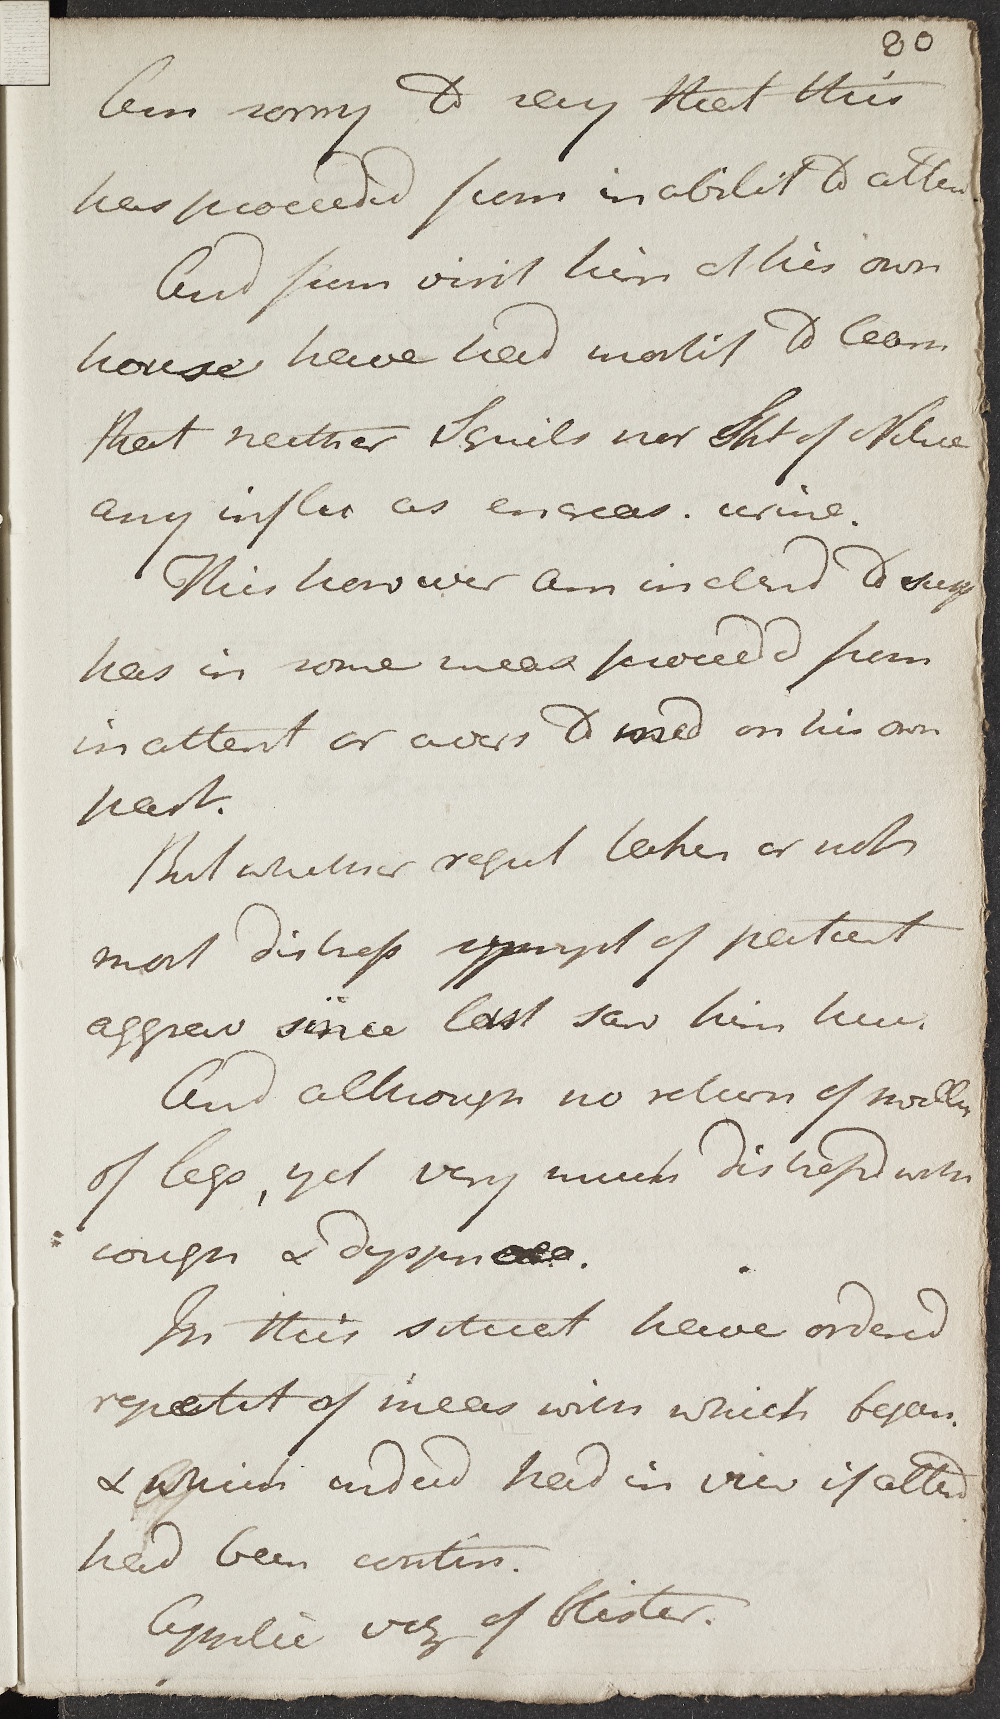 80
Am sorry to say that this
has proceeded from inabilit to atten
And from visit him at his own
house have had mortif to learn
that neither Squils nor Spt of Nitre
any influ as encreas. urine.
This however am inclend to susp
has in some meas proceedd from
inattent or avers to med on his own
part.
But whether regul taken or not
most distress sympt of patient
aggrav since last saw him here.
And although no return of swellin
of legs, yet very much distressd with
cough & dyspnoea.
In this situat have ordered
repetit of meas with which began.
& which indeed had in view if attend
had been contin.
Applic viz of blister.